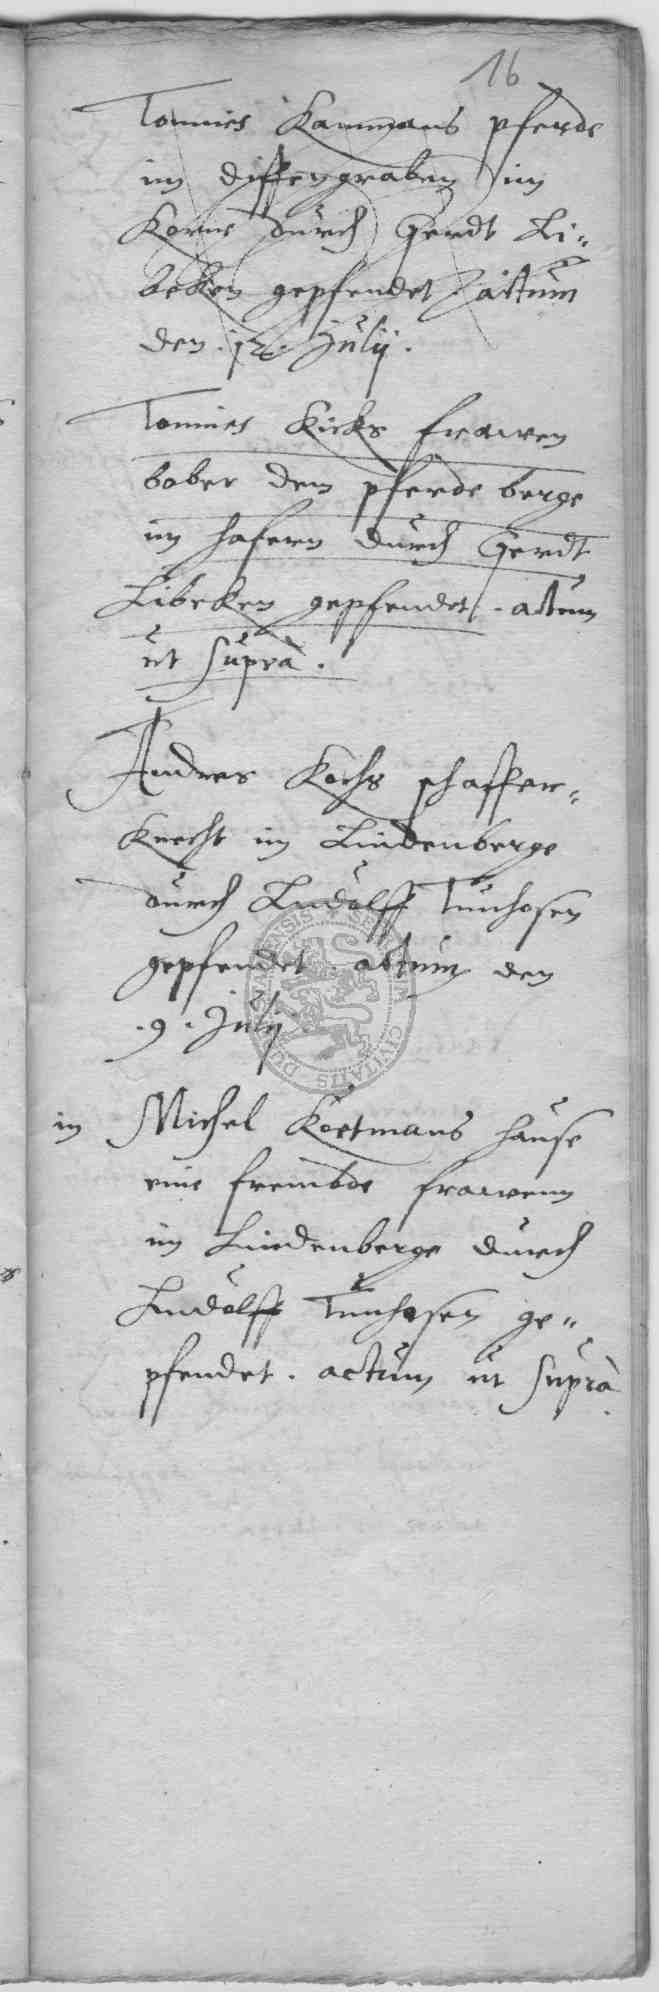 16
Tonnies Kanmans pferde
im diffengraben im
Korne durch Gerdt Li-
beken gepfendet. actum
den .12. Julij.
Tonnies Kicks frawen
bober dem pferde berge
im hafern durch Gerdt
Libeken gepfendet. actum
ut supra.
Andres Kochs schaffer-
knecht im Lindenberge
durch Ludolff Tunhosen
gepfendet. actum den
.9. Julij
in Michel Kortmans hause
eine frembde frawenn
im Lindenberge durch
Ludolff Tunhosen ge-
pfendet. actum ut supra